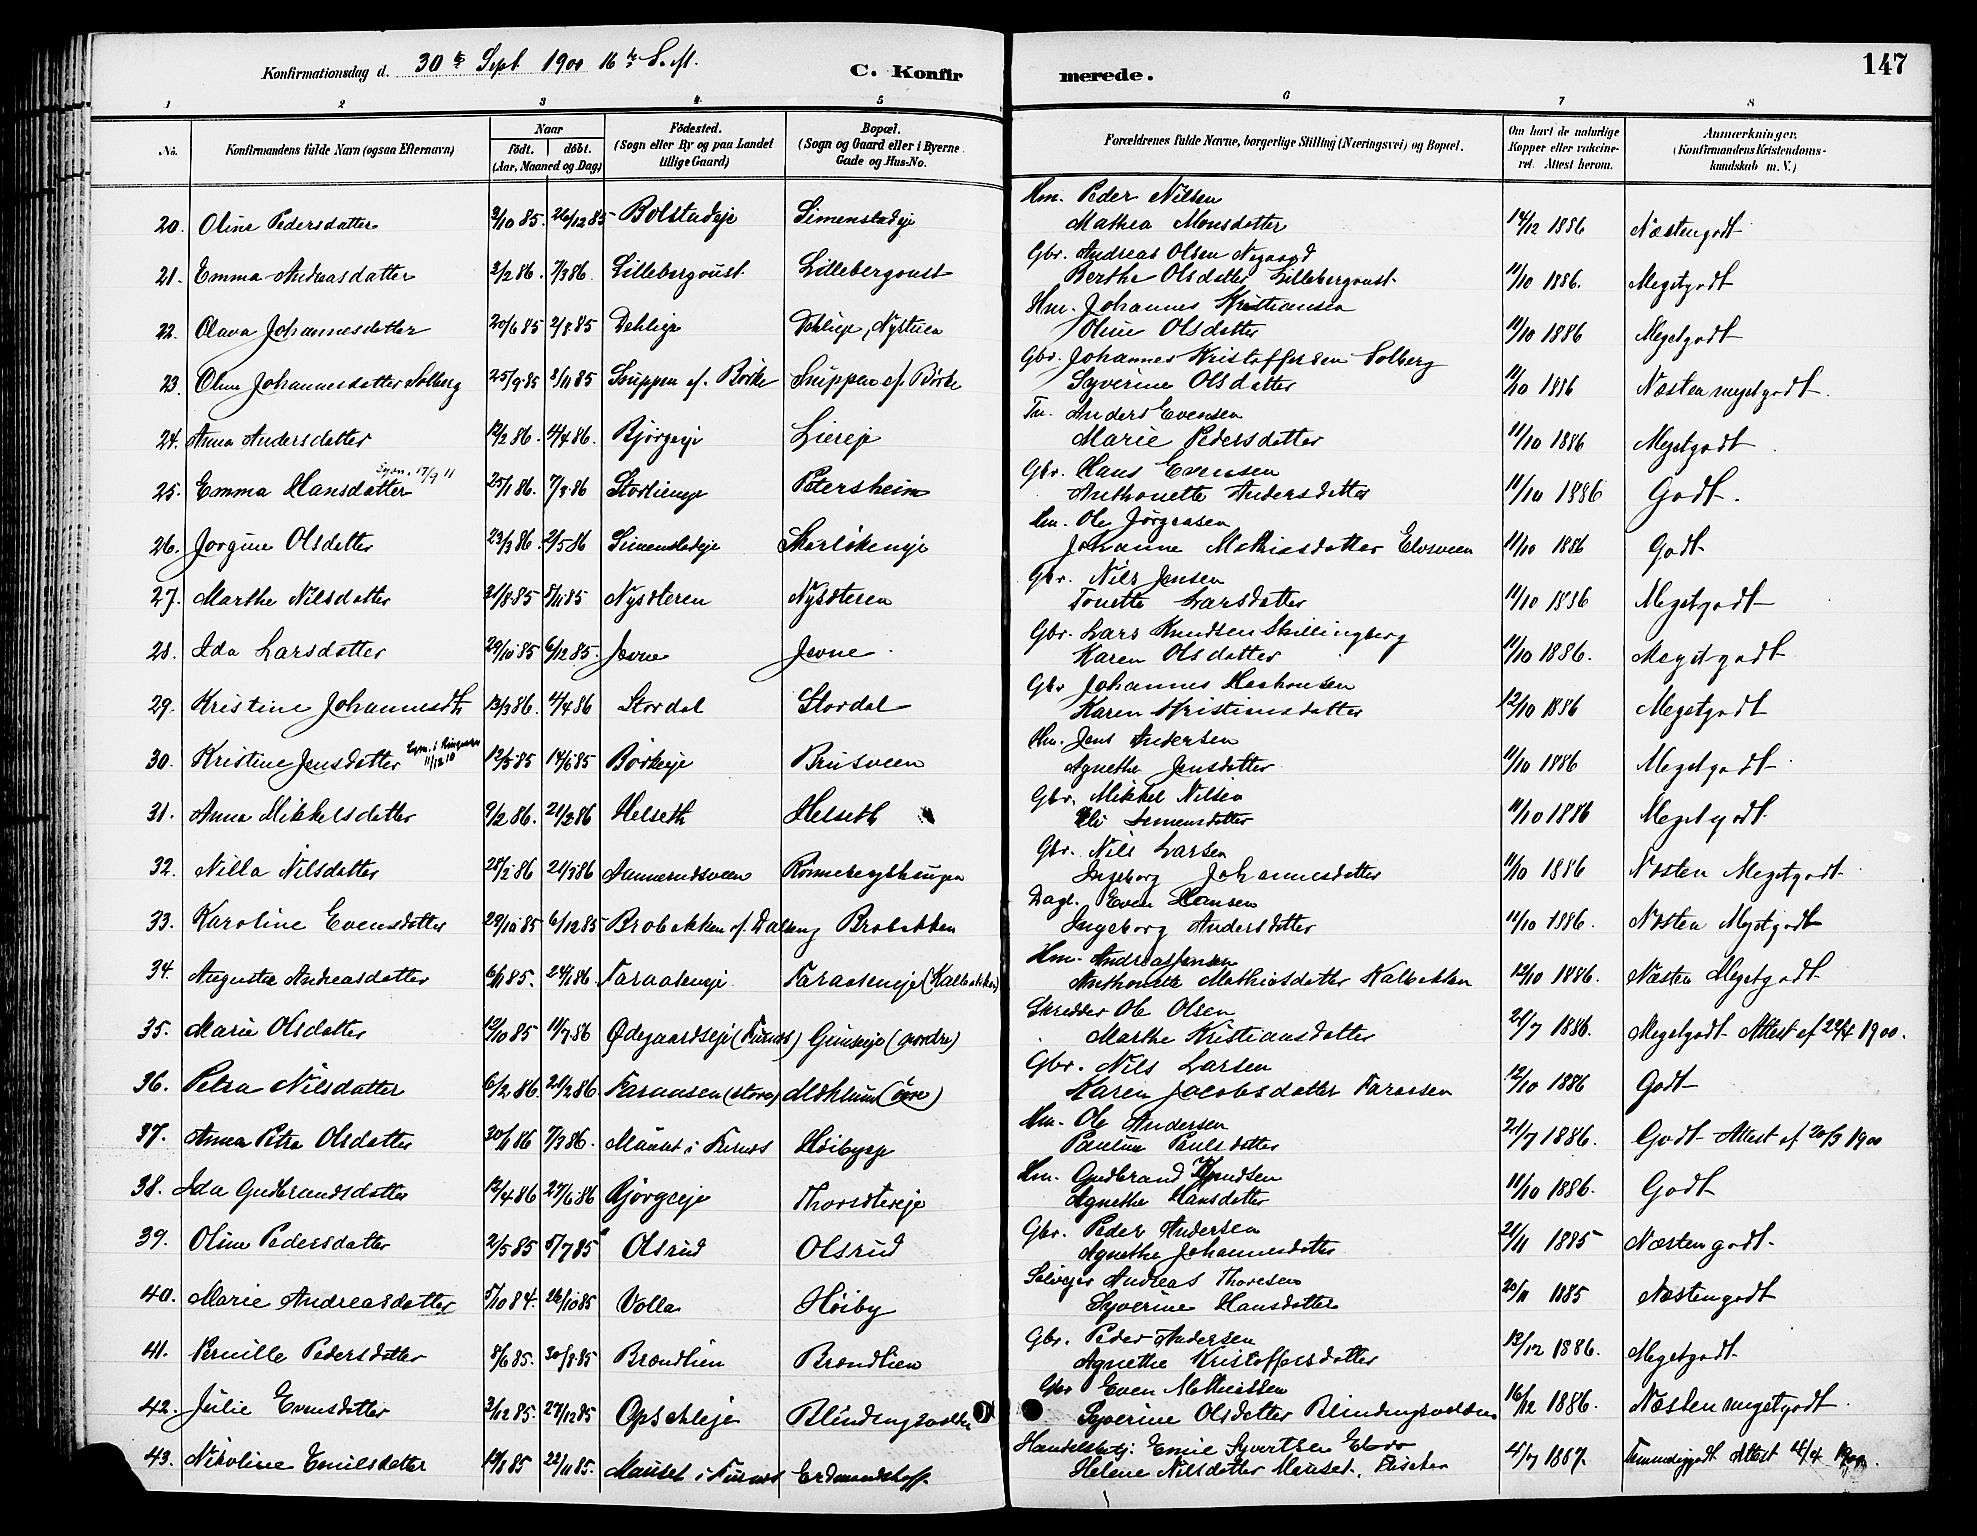 147
Konfirmationsdag d. 30te Sept. 1900 16de S. e. Tr.
C. Konfirmerede.
1 2 3 4 5 6 7 8
No. Konfirmandens fulde Navn (ogsaa Efternavn) Naar født. døbt. (Aar, Maaned og Dag) Fødested. (Sogn eller By og paa Landet tillige Gaard) Bopæl. (Sogn og Gaard eller i Byerne Gade og Hus-No. Forældrenes fulde Navne, borgerlige Stilling (Næringsvei) og Bopæl. Om havt de naturlige Kopper eller vakcineret. Attest herom. Anmærkninger. (Konfirmandens Kristendomskundskab m. V.)
Hm. Peder Nilsen
20. Oline Pedersdatter 3/10 85. 26/12 85 Bolstadeje Simenstadeje Mathea Monsdatter 14/12 1886 Næstengodt
Gbr. Andreas Olsen Nygaard
21. Emma Andreasdatter 2/2 86. 7/3 86. Lillebergoust Lillebergoust Berthe Olsdatter Lillebergoust 11/10 1886. Megetgodt
Hm. Johannes Kristiansen
22. Olava Johannesdatter 20/6 85 2/8 85 Dehlieje Dehlieje, Nystuen Oline Olsdatter 11/10 1886 Megetgodt
Gbr. Johannes Kristoffersen Solberg
23. Oline Johannesdatter Solberg 25/9 85 2/11 85 Snuppen af. Børke Snuppen af. Børke Syverine Olsdatter 11/10 1886 Næsten megetgodt.
Tn. Anders Evensen
24. Anna Andersdatter 12/2 86. 4/4 86. Bjørgeje Liereje Marie Pedersdatter 11/10 1886 Megetgodt
Gbr. Hans Evensen
25. Emma Hansdatter 17/9 11 25/1 86. 7/3 86 Storlieneje Petersheim Anthonette Andersdatter 11/10 1886 Godt.
Hm. Ole Jørgensen
26. Jørgine Olsdatter 23/3 86. 2/5 86 Simenstadeje Skarløkeneje Johanne Mathiasdatter Elvsveen 11/10 1886 Godt
Gbr. Nils Jensen
27. Marthe Nilsdatter 21/8 85 8/11 85 Nysæteren Nysæteren Tonette Larsdatter 11/10 1886 Megetgodt
Gbr. Lars Knudsen Skillingberg
28. Ida Larsdatter 29/10 85 6/12 85. Jevne Jevne Karen Olsdatter 11/10 1886. Megetgodt
Gbr Johannes
29. Kristine Johannesdtr 13/3 86. 4/4 86 Stordal Stordal Karen Kristiansdatter 12/10 1886 Megetgodt
Hm. Jens Andersen
30. Kristine Jensdatter 11/12 10 12/5 85 14/6 85 Børkeje Brusveen Agnethe Jensdatter 11/10 1886 Megetgodt
Gbr. Mikkel Nilsen
31. Anna Mikkelsdatter 9/2 86. 21/2 86 Helseth Helseth Eli Simensdatter 11/10 1886 Megetgodt
Gbr. Nils Larsen
32. Nilla Nilsdatter 86 21/3 86 Ammerudsveen Rønneberghaugen Ingeborg Johannesdatter 11/10 1886 Næsten Megetgodt
Dagl. Even Hansen
33. Karoline Evensdatter 29/10 85 6/12 85 Brobakken af. Dalseng Brobakken Ingeborg Andersdatter 11/10 1886. Næsten Megetgodt
Hm. Andreas Jensen
34. Augusta Andreasdatter 6/11 85. 24/1 86. Faraaseneje Faraaseneje (Kalbakken) Anthonette Mathiasdatter Kalbakken 12/10 1886. Næsten Megetgodt
Skrædder Ole Olsen
35. Marie Olsdatter 12/10 85 11/7 86 Ødegaardseje (Furnes) Gimseeje (nordre) Marthe Kristiansdatter 21/7 1886. Megetgodt Attest af 22/4 1900.
Gbr. Nils Larsen
36. Petra Nilsdatter 6/2 86. 21/2 86 Faraasen (store) Mæhlum (øvre) Karen Jacobsdatter Faraasen 12/10 1886 Godt
Hm. Ole Andersen
37. Anna Petra Olsdatter 30/1 86 7/3 86. Mauset i Furnes Høibyeje Pauline Paulsdatter 21/7 1886. Godt Attest af 20/3 1900
Hm. Gudbrand Knudsen
38. Ida Gudbrandsdatter 12/4 86 27/6 86 Bjørgeeje Thorsætereje Agnethe Hansdatter 11/10 1886. Godt
Gbr. Peder Andersen
39. Oline Pedersdatter 2/5 85 5/7 85 Olsrud Olsrud Agnethe Johannesdatter 21/11 1885 Næstengodt
Selvejer Andreas Thoresen
40. Marie Andreasdatter 5/10 84. 26/10 85 Volla Høiby Syverine Hansdatter 20/11 1885 Næstengodt
Gbr. Peder Andersen
41. Pernille Pedersdatter 8/6 85. 30/8 85 Brændlien Brændlien Agnethe Kristoffersdatter 13/12 1886. Megetgodt
Gbr Even Mathiassen
42. Julie Evensdatter 3/12 85. 27/12 85 Opsahleje Blindingsvolden Syverine Olsdatter Blindingsvolden 16/12 1886. Næsten megetgodt.
Handelsbetj: Emil Syvertsen Elvro
43. Nikoline Emilsdatter 85 22/11 85. Mauset i Furnes Erdmandshoff Helene Nilsdatter Mauset, 4/7 1887. Temmeliggodt Attest 4/4 1900.